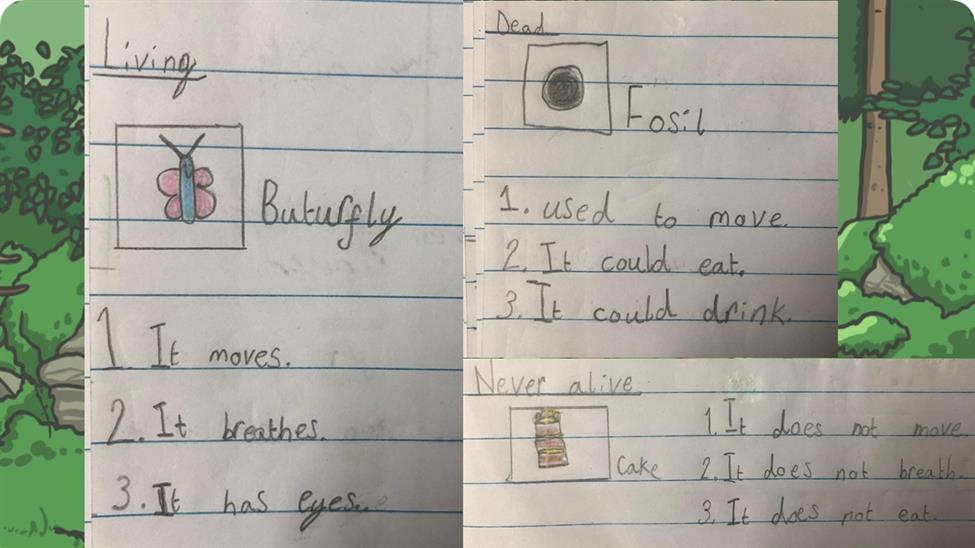 Living
Buturfly
1. It moves.
2. It breathes.
3. It has eyes.
Dead
Fosil
1. used to move.
2. It could eat.
3. It could drink.
Never alive
Cake
1. It does not move.
2. It does not breath.
3. It does not eat.